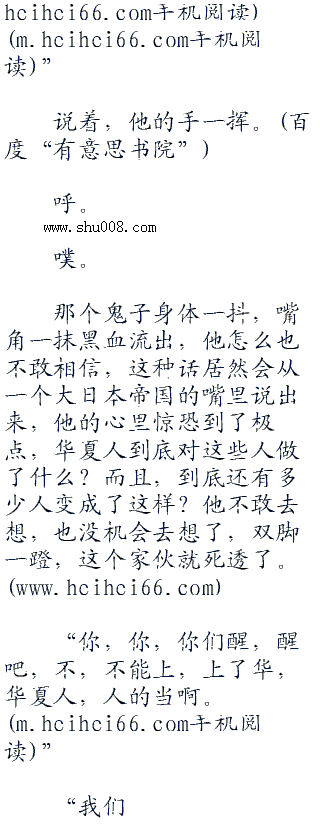 hcihci66.com手机阅读)
(m.hcihci66.com手机阅
读)”
说着，他的手一挥。(百
度“有意思书院”)
呼。
www.shu008.com
噗。
那个鬼子身体一抖，嘴
角一抹黑血流出，他怎么也
不敢相信，这种话居然会从
一个大日本帝国的嘴里说出
来，他的心里惊恐到了极
点，华夏人到底对这些人做
了什么？而且，到底还有多
少人变成了这样？他不敢去
想，也没机会去想了，双脚
一蹬，这个家伙就死透了。
(www.hcihci66.com)
“你，你，你们醒，醒
吧，不，不能上，上了华，
华夏人，人的当啊。
(m.hcihci66.com手机阅
读)”
“我们